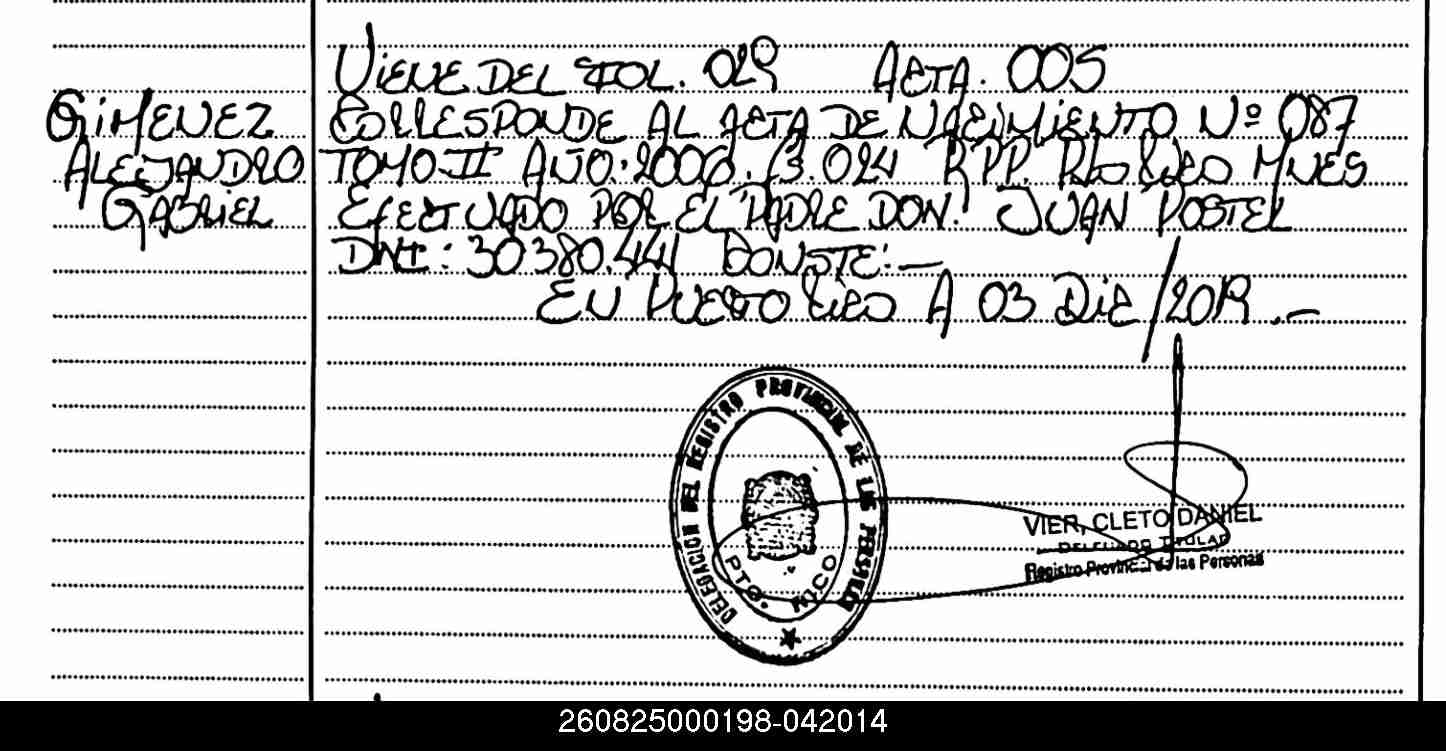 VIENE DEL FOL. 029 ACTA. 005
GIMENEZ
ALEJANDRO
GABRIEL
CORRESPONDE AL ACTA DE NACIMIENTO Nº 087
TOMO II AÑO: 2006. 024 RPP. Pto Rico MNES
EFECTUADO POR EL PADRE DON: JUAN POSTEL
DNI: 30380.441 CONSTE:—
EN PUERTO RICO A 03 DIC/2019.—
DELEGACION DEL REGISTRO PROVINCIAL DE LAS PERSONAS
PTO. RICO
VIER, CLETO DANIEL
DELEGADO TITULAR
Registro Provincial de las Personas
260825000198-042014